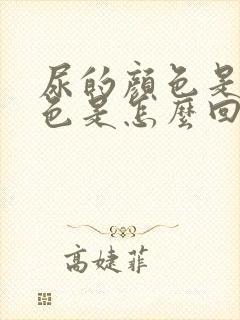 尿的顏色是
色是怎麼回
高婕菲